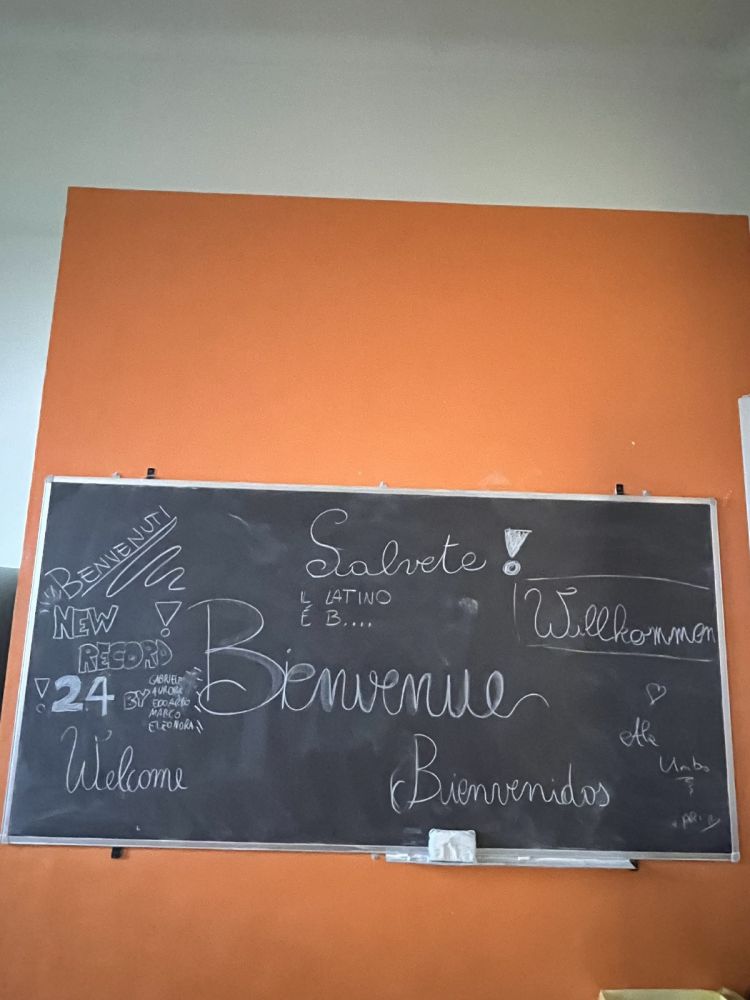 BENVENUTI
Salvete!
IL LATINO
È B....
NEW
RECORD!
! 24 BY
GABRIELE
AURORA
EDOARDO
MARCO
ELEONORA
Willkommen
Bienvenue
Welcome
Bienvenidos
Ale